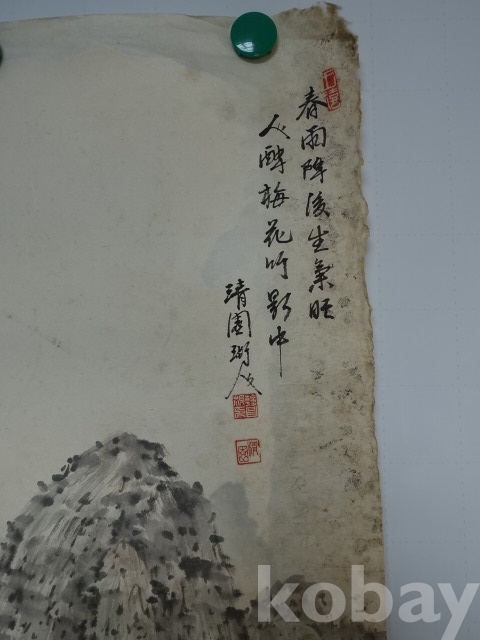 春雨降後生氣旺
人醉梅花竹影中
靖園
kobay